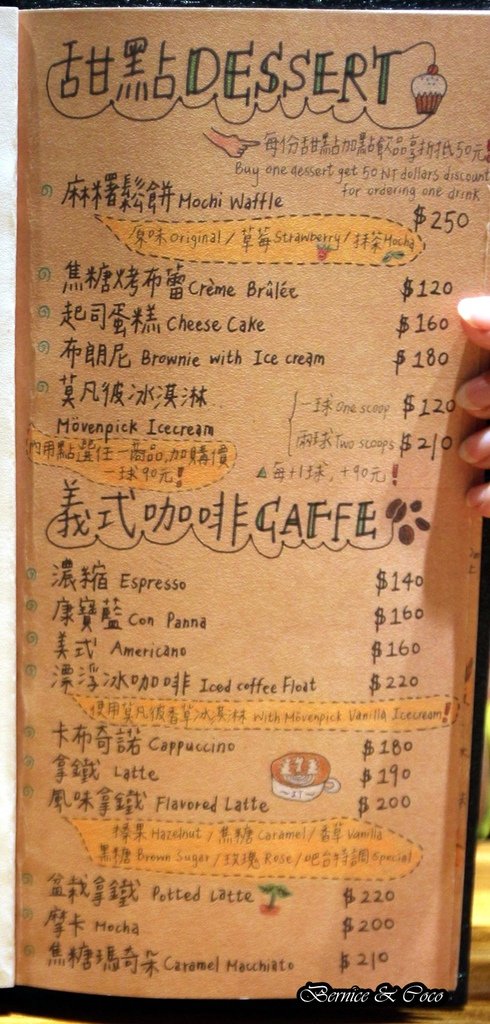 甜點 DESSERT
每份甜點加點飲品享折抵50元!
Buy one dessert get 50 NT dollars discount
for ordering one drink
麻糬鬆餅 Mochi Waffle $250
原味 Original / 草莓 Strawberry / 抹茶 Mocha
焦糖烤布蕾 Crème Brûlée $120
起司蛋糕 Cheese Cake $160
布朗尼 Brownie with Ice cream $180
莫凡彼冰淇淋 一球 One scoop $120
Mövenpick Icecream 兩球 Two scoops $210
內用點選任一商品,加購價 每+1球,+90元!
一球90元!
義式咖啡 CAFFE
濃縮 Espresso $140
康寶藍 Con Panna $160
美式 Americano $160
漂浮冰咖啡 Iced coffee Float $220
使用莫凡彼香草冰淇淋 With Mövenpick Vanilla Icecream!
卡布奇諾 Cappuccino $180
拿鐵 Latte $190
風味拿鐵 Flavored Latte $200
榛果 Hazelnut / 焦糖 Caramel / 香草 Vanilla
黑糖 Brown Sugar / 玫瑰 Rose / 吧台特調 Special
盆栽拿鐵 Potted Latte $220
摩卡 Mocha $200
焦糖瑪奇朵 Caramel Macchiato $210
Bernice & Coco